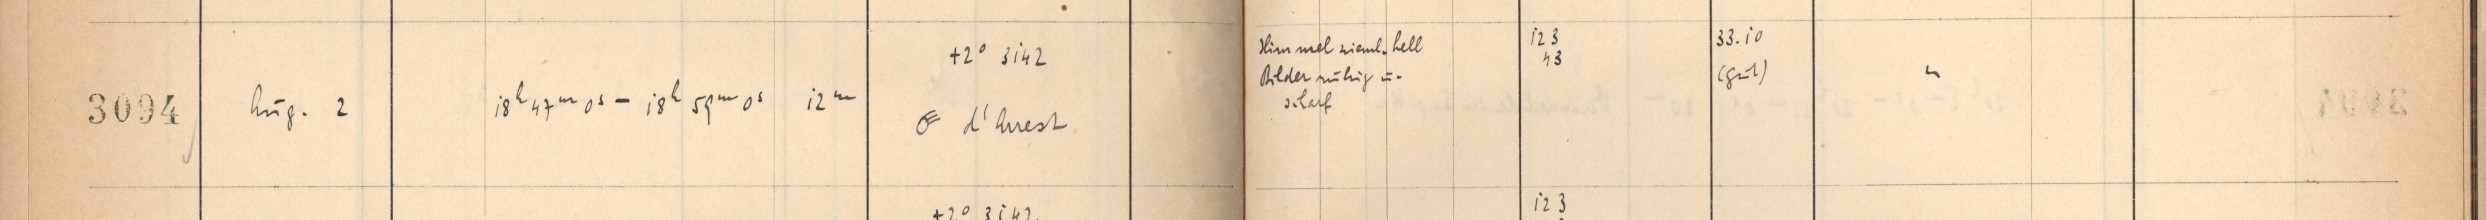 +2° 3142
3094 Aug. 2 18h 47m 0s – 18h 59m 0s 12m
☄ d'Arrest
Himmel zieml. hell
Bilder ruhig u.
scharf
123
43
33.10
(gut)
"
+2° 3142.
123